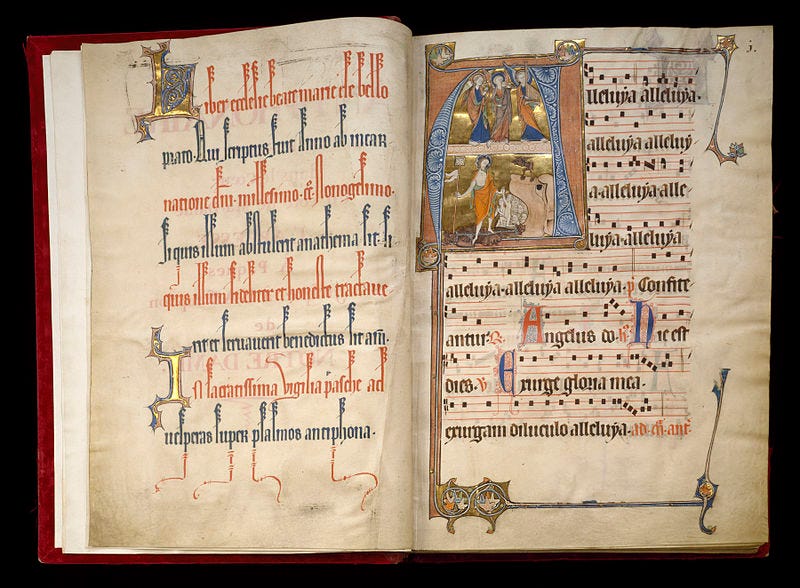 Liber ecclesie beate marie de bello
prato. Qui scriptus fuit Anno ab incar
natione dni millesimo. cc. Nonogesimo.
si quis illum abstulerit anathema sit. si
quis illum fideliter et honeste tractave
rit et servaverit benedictus sit am.
In sacratissima vigilia pasche ad
vesperas super psalmos antiphona.
j.
Alleluya alleluya.
alleluya alleluy
a. alleluya. alle
luya. alleluya
alleluya. alleluya. alleluya. p Confite
antur. Angelus do. Hic est
dies. Exurge gloria mea.
exurgam diluculo alleluya. ad